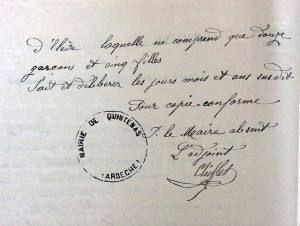 d'Hière laquelle ne comprend que douze
garçons et cinq filles
Fait et délibérer les jours mois et ans susdit
Pour copie conforme
P. le Maire absent
L'adjoint
MAIRIE DE QUINTENAS
(ARDÈCHE)